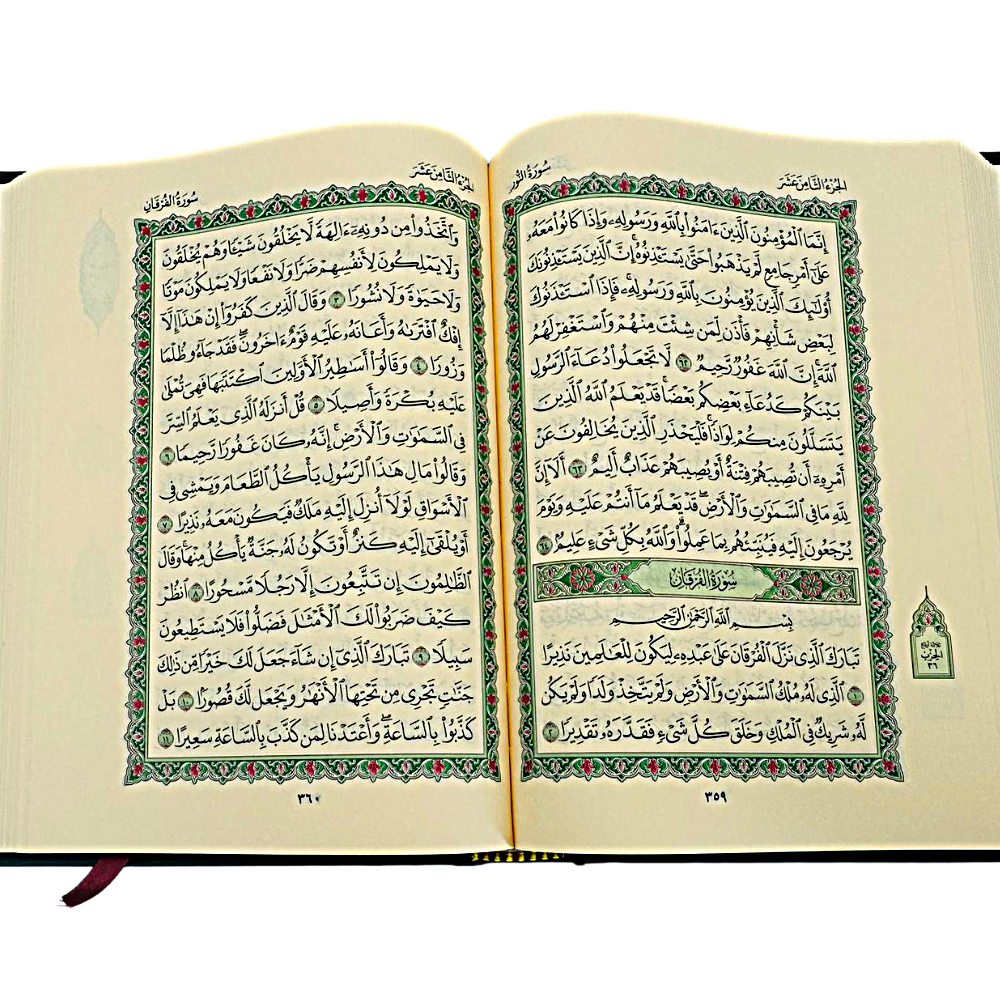 الجزء الثامن عشر
سورة النور
إِنَّمَا ٱلْمُؤْمِنُونَ ٱلَّذِينَ ءَامَنُوا۟ بِٱللَّهِ وَرَسُولِهِۦ وَإِذَا كَانُوا۟ مَعَهُۥ
عَلَىٰٓ أَمْرٍ جَامِعٍ لَّمْ يَذْهَبُوا۟ حَتَّىٰ يَسْتَـْٔذِنُوهُ ۚ إِنَّ ٱلَّذِينَ يَسْتَـْٔذِنُونَكَ
أُو۟لَـٰٓئِكَ ٱلَّذِينَ يُؤْمِنُونَ بِٱللَّهِ وَرَسُولِهِۦ ۚ فَإِذَا ٱسْتَـْٔذَنُوكَ
لِبَعْضِ شَأْنِهِمْ فَأْذَن لِّمَن شِئْتَ مِنْهُمْ وَٱسْتَغْفِرْ لَهُمُ
ٱللَّهَ ۚ إِنَّ ٱللَّهَ غَفُورٌ رَّحِيمٌ ٦٢ لَّا تَجْعَلُوا۟ دُعَآءَ ٱلرَّسُولِ
بَيْنَكُمْ كَدُعَآءِ بَعْضِكُم بَعْضًا ۚ قَدْ يَعْلَمُ ٱللَّهُ ٱلَّذِينَ
يَتَسَلَّلُونَ مِنكُمْ لِوَاذًا ۚ فَلْيَحْذَرِ ٱلَّذِينَ يُخَالِفُونَ عَنْ
أَمْرِهِۦٓ أَن تُصِيبَهُمْ فِتْنَةٌ أَوْ يُصِيبَهُمْ عَذَابٌ أَلِيمٌ ٦٣ أَلَآ إِنَّ
لِلَّهِ مَا فِى ٱلسَّمَـٰوَٰتِ وَٱلْأَرْضِ ۖ قَدْ يَعْلَمُ مَآ أَنتُمْ عَلَيْهِ وَيَوْمَ
يُرْجَعُونَ إِلَيْهِ فَيُنَبِّئُهُم بِمَا عَمِلُوا۟ ۗ وَٱللَّهُ بِكُلِّ شَىْءٍ عَلِيمٌۢ ٦٤
سورة الفرقان
بِسْمِ ٱللَّهِ ٱلرَّحْمَـٰنِ ٱلرَّحِيمِ
تَبَارَكَ ٱلَّذِى نَزَّلَ ٱلْفُرْقَانَ عَلَىٰ عَبْدِهِۦ لِيَكُونَ لِلْعَـٰلَمِينَ نَذِيرًا
١ ٱلَّذِى لَهُۥ مُلْكُ ٱلسَّمَـٰوَٰتِ وَٱلْأَرْضِ وَلَمْ يَتَّخِذْ وَلَدًا وَلَمْ يَكُن
لَّهُۥ شَرِيكٌ فِى ٱلْمُلْكِ وَخَلَقَ كُلَّ شَىْءٍ فَقَدَّرَهُۥ تَقْدِيرًا ٢
الحزب
٣٦
٣٥٩
الجزء الثامن عشر
سورة الفرقان
وَٱتَّخَذُوا۟ مِن دُونِهِۦٓ ءَالِهَةً لَّا يَخْلُقُونَ شَيْـًٔا وَهُمْ يُخْلَقُونَ
وَلَا يَمْلِكُونَ لِأَنفُسِهِمْ ضَرًّا وَلَا نَفْعًا وَلَا يَمْلِكُونَ مَوْتًا
وَلَا حَيَوٰةً وَلَا نُشُورًا ٣ وَقَالَ ٱلَّذِينَ كَفَرُوٓا۟ إِنْ هَـٰذَآ إِلَّآ
إِفْكٌ ٱفْتَرَىٰهُ وَأَعَانَهُۥ عَلَيْهِ قَوْمٌ ءَاخَرُونَ ۖ فَقَدْ جَآءُو ظُلْمًا
وَزُورًا ٤ وَقَالُوٓا۟ أَسَـٰطِيرُ ٱلْأَوَّلِينَ ٱكْتَتَبَهَا فَهِىَ تُمْلَىٰ
عَلَيْهِ بُكْرَةً وَأَصِيلًا ٥ قُلْ أَنزَلَهُ ٱلَّذِى يَعْلَمُ ٱلسِّرَّ
فِى ٱلسَّمَـٰوَٰتِ وَٱلْأَرْضِ ۚ إِنَّهُۥ كَانَ غَفُورًا رَّحِيمًا ٦
وَقَالُوا۟ مَالِ هَـٰذَا ٱلرَّسُولِ يَأْكُلُ ٱلطَّعَامَ وَيَمْشِى فِى
ٱلْأَسْوَاقِ ۙ لَوْلَآ أُنزِلَ إِلَيْهِ مَلَكٌ فَيَكُونَ مَعَهُۥ نَذِيرًا ٧
أَوْ يُلْقَىٰٓ إِلَيْهِ كَنزٌ أَوْ تَكُونُ لَهُۥ جَنَّةٌ يَأْكُلُ مِنْهَا ۚ وَقَالَ
ٱلظَّـٰلِمُونَ إِن تَتَّبِعُونَ إِلَّا رَجُلًا مَّسْحُورًا ٨ ٱنظُرْ
كَيْفَ ضَرَبُوا۟ لَكَ ٱلْأَمْثَـٰلَ فَضَلُّوا۟ فَلَا يَسْتَطِيعُونَ
سَبِيلًا ٩ تَبَارَكَ ٱلَّذِىٓ إِن شَآءَ جَعَلَ لَكَ خَيْرًا مِّن ذَٰلِكَ
جَنَّـٰتٍ تَجْرِى مِن تَحْتِهَا ٱلْأَنْهَـٰرُ وَيَجْعَل لَّكَ قُصُورًۢا ١٠ بَلْ
كَذَّبُوا۟ بِٱلسَّاعَةِ ۖ وَأَعْتَدْنَا لِمَن كَذَّبَ بِٱلسَّاعَةِ سَعِيرًا ١١
٣٦٠